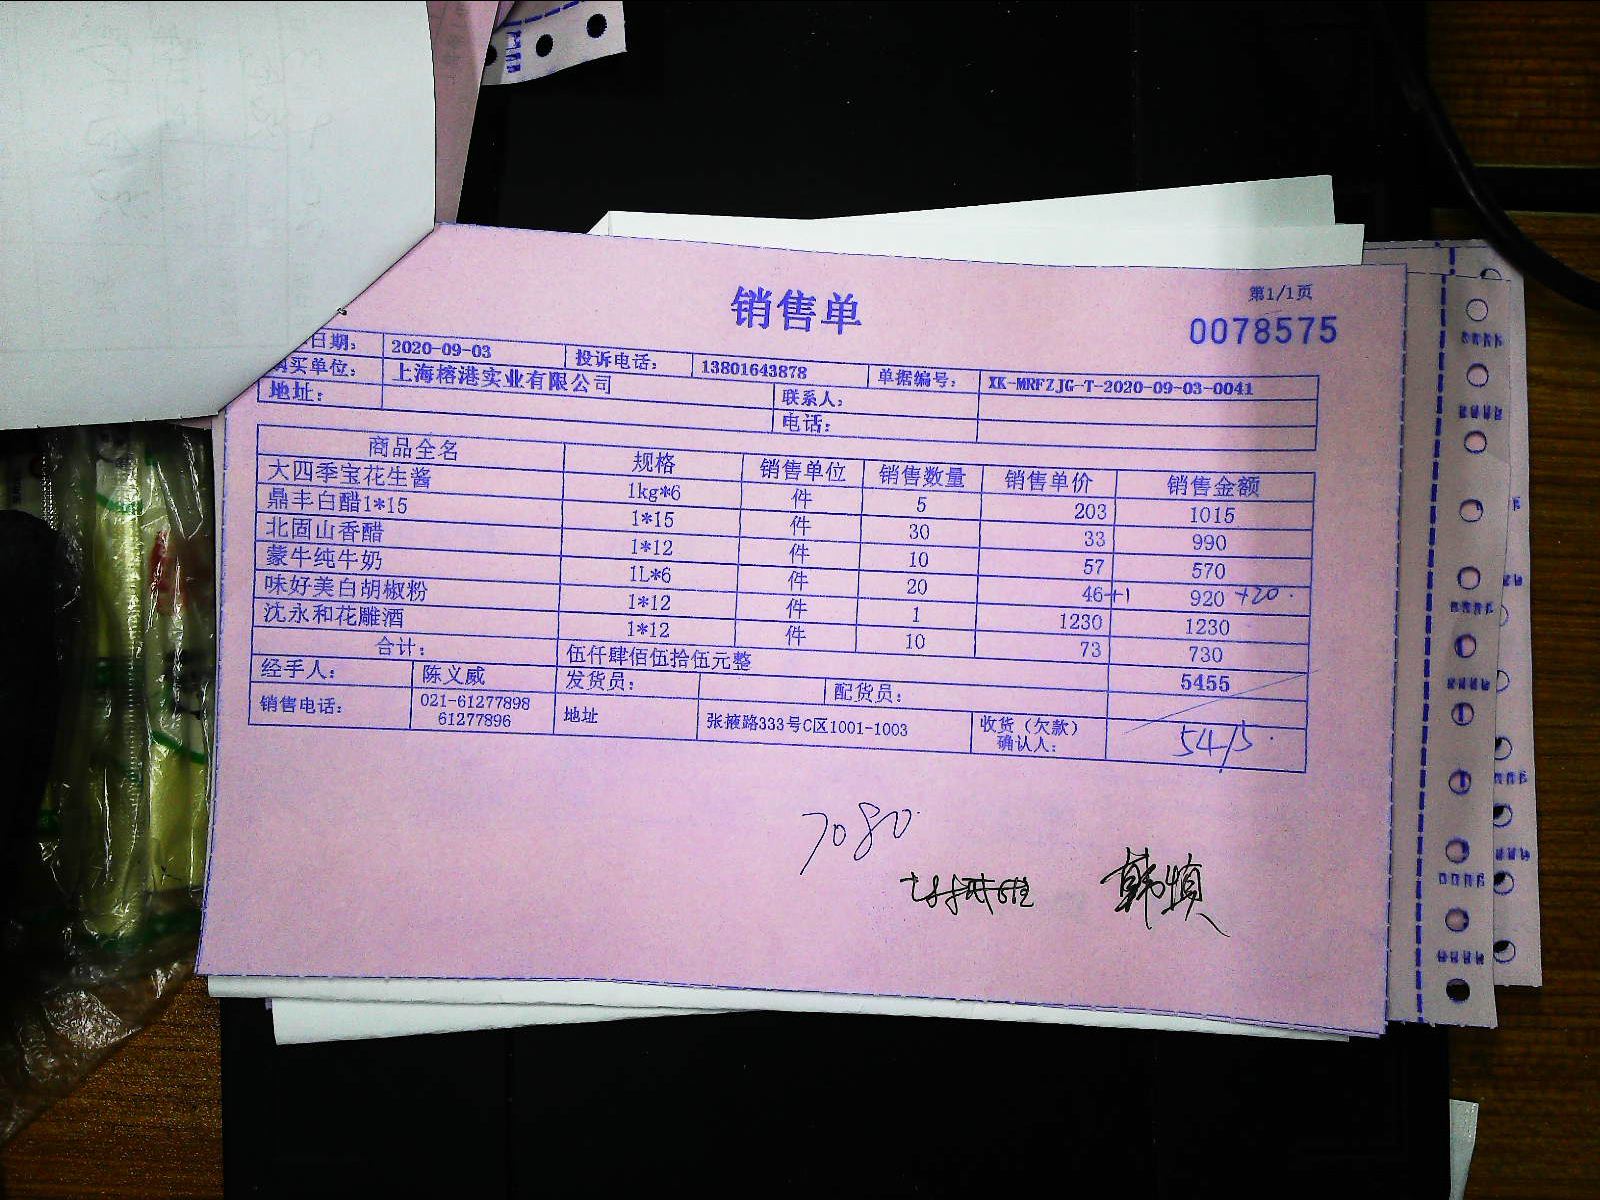 销售单
第1/1页
0078575
日期： 2020-09-03 投诉电话： 13801643878 单据编号： XK-MRFZJG-T-2020-09-03-0041
购买单位： 上海榕港实业有限公司 联系人：
地址： 电话：
商品全名 规格 销售单位 销售数量 销售单价 销售金额
大四季宝花生酱 1kg*6 件 5 203 1015
鼎丰白醋1*15 1*15 件 30 33 990
北固山香醋 1*12 件 10 57 570
蒙牛纯牛奶 1L*6 件 20 46+1 920 +20
味好美白胡椒粉 1*12 件 1 1230 1230
沈永和花雕酒 1*12 件 10 73 730
合计： 伍仟肆佰伍拾伍元整 5455
经手人： 陈义威 发货员： 配货员：
销售电话： 021-61277898 地址 张掖路333号C区1001-1003 收货（欠款）
61277896 确认人：
5415
7080
韩慎